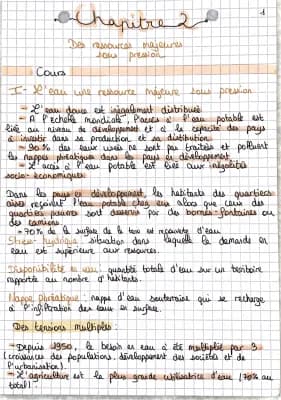 1
Chapitre 2
Des ressources majeures
sous pression
Cours
I- L'eau une ressource majeure sous pression
- L'eau douce est inégalement distribuée
- A l'échelle mondiale, l'accès à l'eau potable est
liée au niveau de développement et à la capacité des pays
à investir dans sa production et sa distribution.
- 90% des eaux usées ne sont pas traitées et polluent
les nappes phréatiques dans les pays en développement.
- L'accès à l'eau potable est liée aux inégalités
socio-économiques.
Dans les pays en développement, les habitants des quartiers
aisés reçoivent l'eau potable chez eux alors que ceux des
quartiers pauvres sont desservis par des bornes-fontaines ou
des camions.
- 70% de la surface de la terre est recouverte d'eau
Stress hydrique: situation dans laquelle la demande en
eau est supérieure aux ressources.
Disponibilité en eau: quantité totale d'eau sur un territoire
rapportée au nombre d'habitants.
Nappe phréatique: nappe d'eau souterraine qui se recharge
à l'infiltration des eaux en surface.
Des tensions multiples:
- Depuis 1950, le besoin en eau a été multiplié par 3
(croissances des populations, développement des sociétés et de
l'urbanisation).
- L'agriculture est la plus grande utilisatrice d'eau (70% au
total)